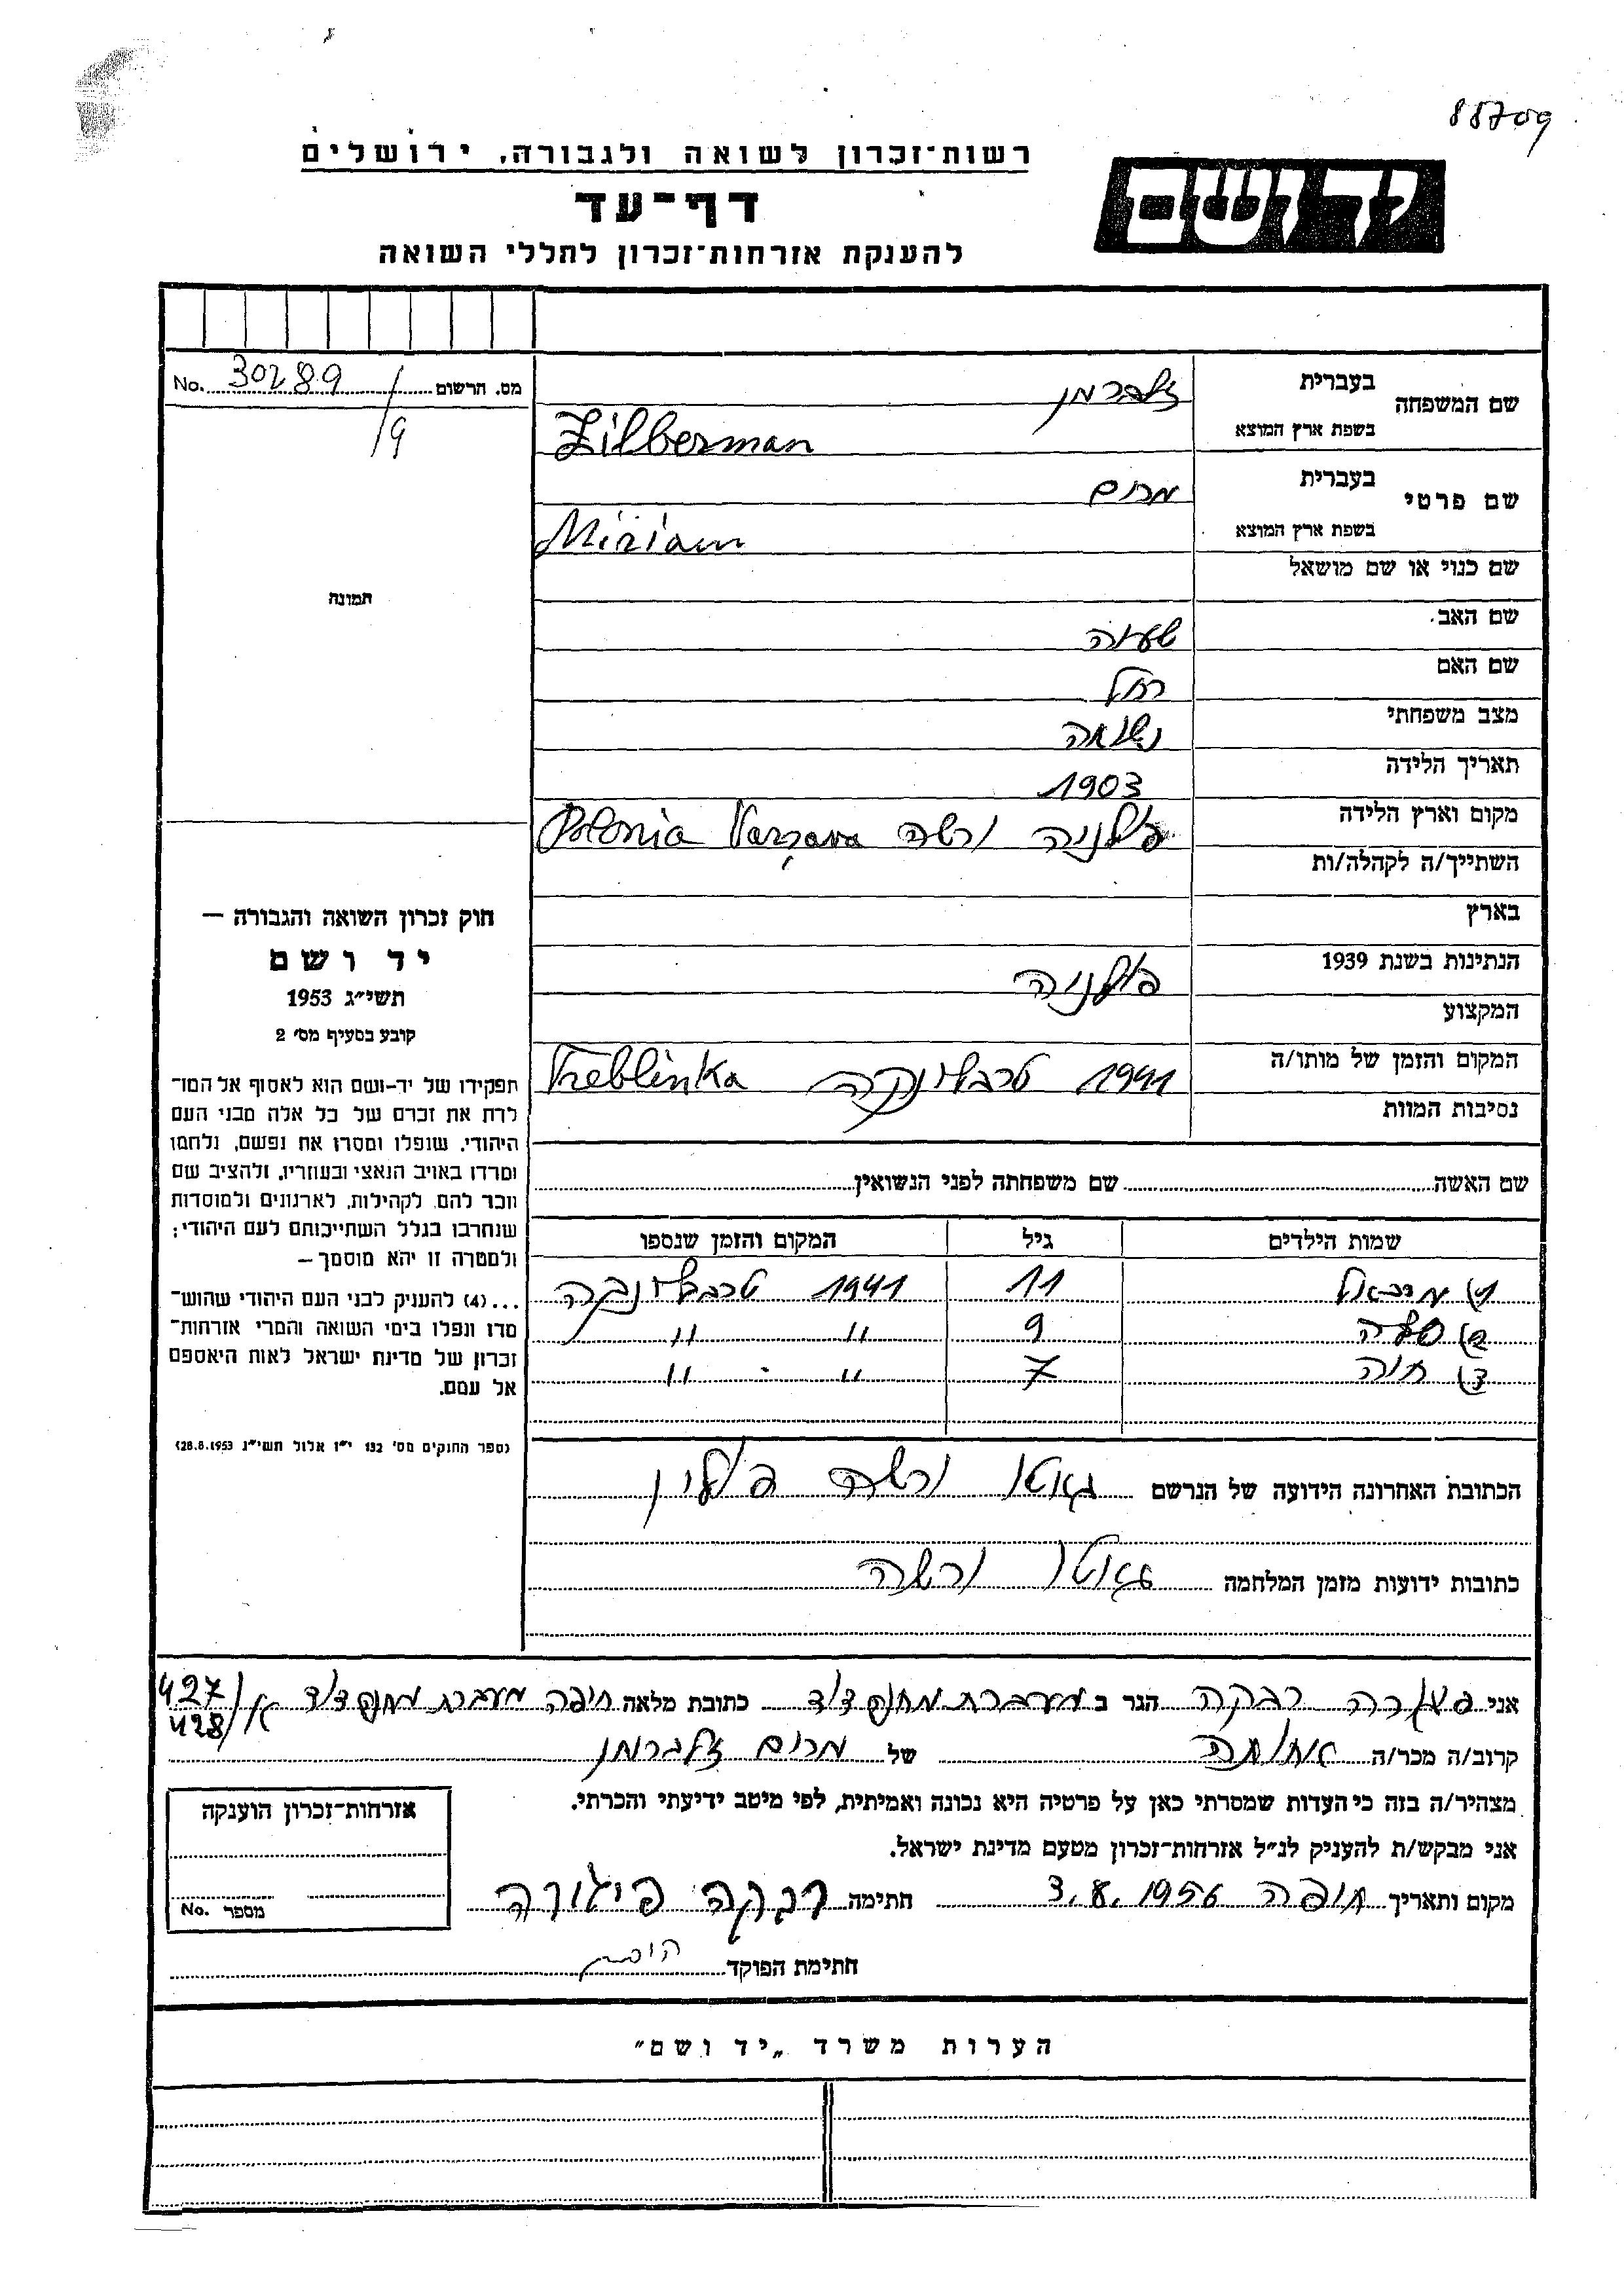 88709
רשות־זכרון לשואה ולגבורה, ירושלים
יד ושם
דף־עד
להענקת אזרחות־זכרון לחללי השואה
מס. הרשום 30289 No.
/9
שם המשפחה
בעברית זלברמן
בשפת ארץ המוצא Zilberman
שם פרטי
בעברית מרים
בשפת ארץ המוצא Miriam
שם כנוי או שם מושאל
תמונה
שם האב שעיה
שם האם רחל
מצב משפחתי נשואה
תאריך הלידה 1903
מקום וארץ הלידה פולניה ורשה Polonia Varşava
השתייך/ה לקהלה/ות
בארץ
הנתינות בשנת 1939 פולניה
המקצוע
המקום והזמן של מותו/ה 1941 טרבלינקה Treblinka
נסיבות המוות
שם האשה שם משפחתה לפני הנשואין
שמות הילדים גיל המקום והזמן שנספו
1) מיכאל 11 1941 טרבלינקה
2) סלה 9 " "
3) חוה 7 " "
הכתובת האחרונה הידועה של הנרשם גאטו ורשה פולין
כתובות ידועות מזמן המלחמה גאטו ורשה
חוק זכרון השואה והגבורה —
יד ושם
תשי״ג 1953
קובע בסעיף מס׳ 2
תפקידו של יד-ושם הוא לאסוף אל המו־
לדת את זכרם של כל אלה מבני העם
היהודי, שנפלו ומסרו את נפשם, נלחמו
ומרדו באויב הנאצי ובעוזריו, ולהציב שם
וזכר להם, לקהילות, לארגונים ולמוסדות
שנחרבו בגלל השתייכותם לעם היהודי;
ולמטרה זו יהא מוסמך —
...(4) להעניק לבני העם היהודי שהוש־
מדו ונפלו בימי השואה והמרי אזרחות־
זכרון של מדינת ישראל לאות היאספם
אל עמם.
(ספר החוקים מס׳ 132 י״ז אלול תשי״ג 28.8.1953)
אני רבקה הגר ב מעברת מחנה דוד כתובת מלאה חיפה מעברת מחנה דוד א/427
428
קרוב/ה מכר/ה אחותה של מרים זלברמן
מצהיר/ה בזה כי העדות שמסרתי כאן על פרטיה היא נכונה ואמיתית, לפי מיטב ידיעתי והכרתי.
אני מבקש/ת להעניק לנ״ל אזרחות־זכרון מטעם מדינת ישראל.
מקום ותאריך חיפה 3.8.1956 חתימה רבקה פיגורה
חתימת הפוקד
אזרחות־זכרון הוענקה
מספר No.
הערות משרד „יד ושם״